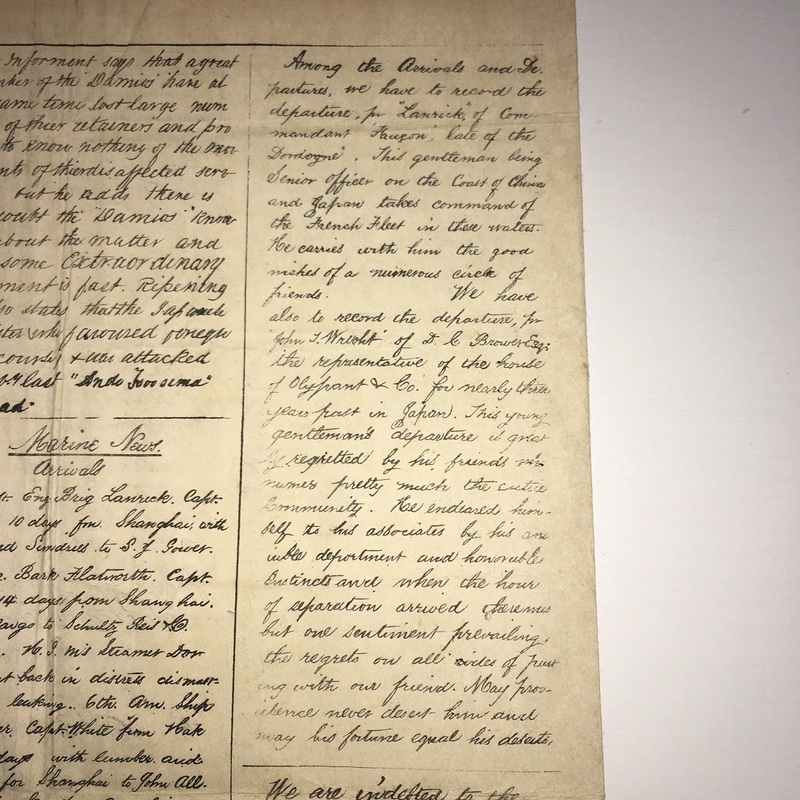 Informent says that a great
of the "Damios" have at
ame time lost large num
of thier retainers and pro
to know nothing of the mov
nts of thier disaffected serv
but he adds there is
oubt the "Damios" know
about the matter and
some Extraordinary
ment is fast Ripening
so states that the Japanese
who favoured foreign
was attacked
last "Ando
ad"
Marine News.
Arrivals
Eng Brig Lanrick. Capt.
10 days fm. Shanghai, with
nd Sundries to S. J. Gower.
Bark Flatworth. Capt.
14 days from Shanghai.
argo to Schultz Reis & Co.
H. I. M's Steamer Dor
t back in distress dismast-
leaking. 6th. Am. Ship
Capt. White from Hak
days with lumber and
for Shanghai to John All-
Among the Arrivals and De-
partures, we have to record the
departure, pr "Lanrick," of Com-
mandant Faucon, late of the
Dordogne". This gentleman being
Senior officer on the Coast of China
and Japan takes command of
the French Fleet in these waters.
He carries with him the good
wishes of a numerous circle of
friends. We have
also to record the departure, pr
"John T. Wright" of D. C. Brower Esq:
the representative of the house
of Olyphant & Co. for nearly three
years past in Japan. This young
gentleman's departure is great
ly regretted by his friends
pretty much the entire
Community. He endeared him-
self to his associates by his am
iable deportment and honorable
Instincts and when the hour
of separation arrived there was
but one sentiment prevailing.
the regrets on all sides of part
ing with our friend. May prov-
idence never desert him and
may his fortune equal his deserts.
We are indebted to the